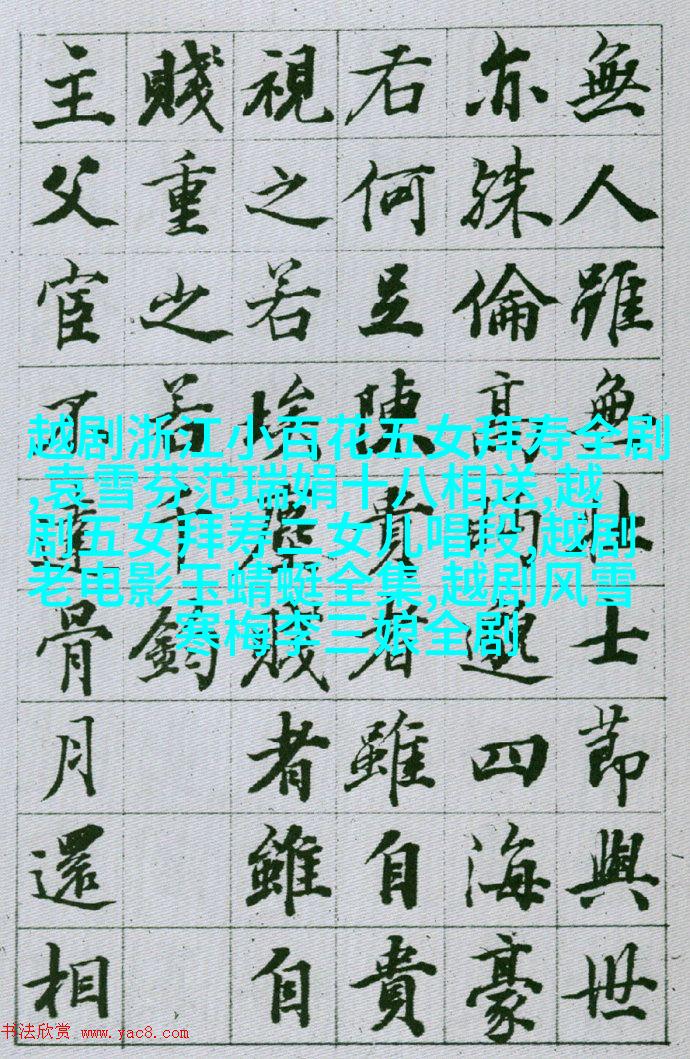 無人雖無壯士節與世
亦殊倫高眄邈四海豪
右何足陳貴者雖自貴
視之若埃塵賤者雖自
賤重之若千鈞
主父宦不達骨月還相
越剧浙江小百花五女拜寿全剧
,袁雪芬范瑞娟十八相送,越
剧五女拜寿二女儿唱段,越剧
老电影玉蜻蜓全集,越剧风雪
寒梅李三娘全剧
书法欣赏 www.yac8.com